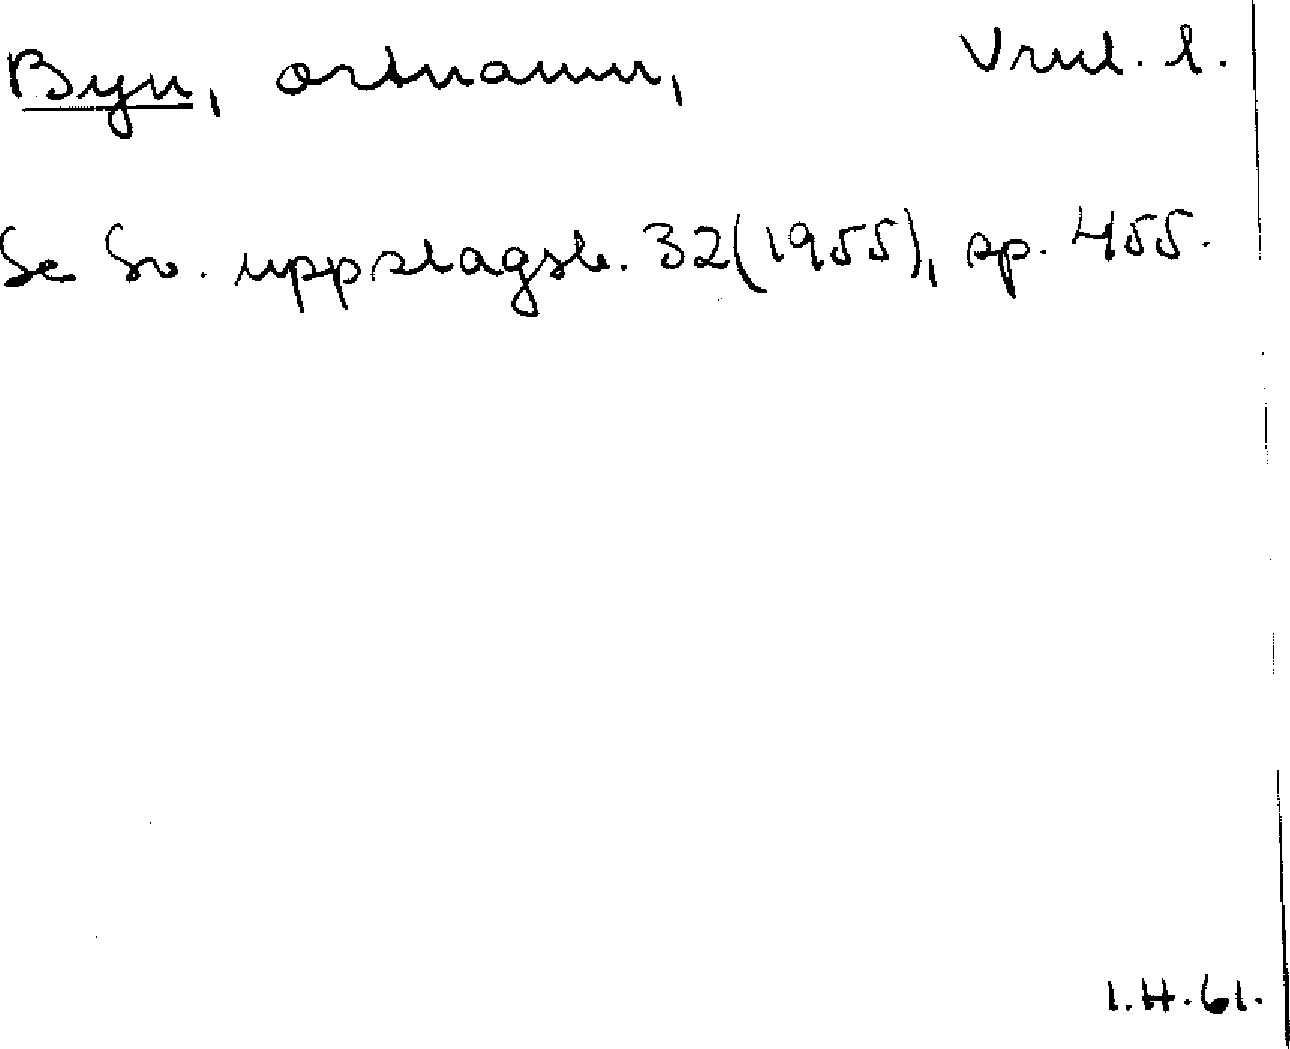 Byn, ortnamn, Vrml. l.
Se Sv. uppslagsb. 32(1955), sp. 455.
I.H.61.